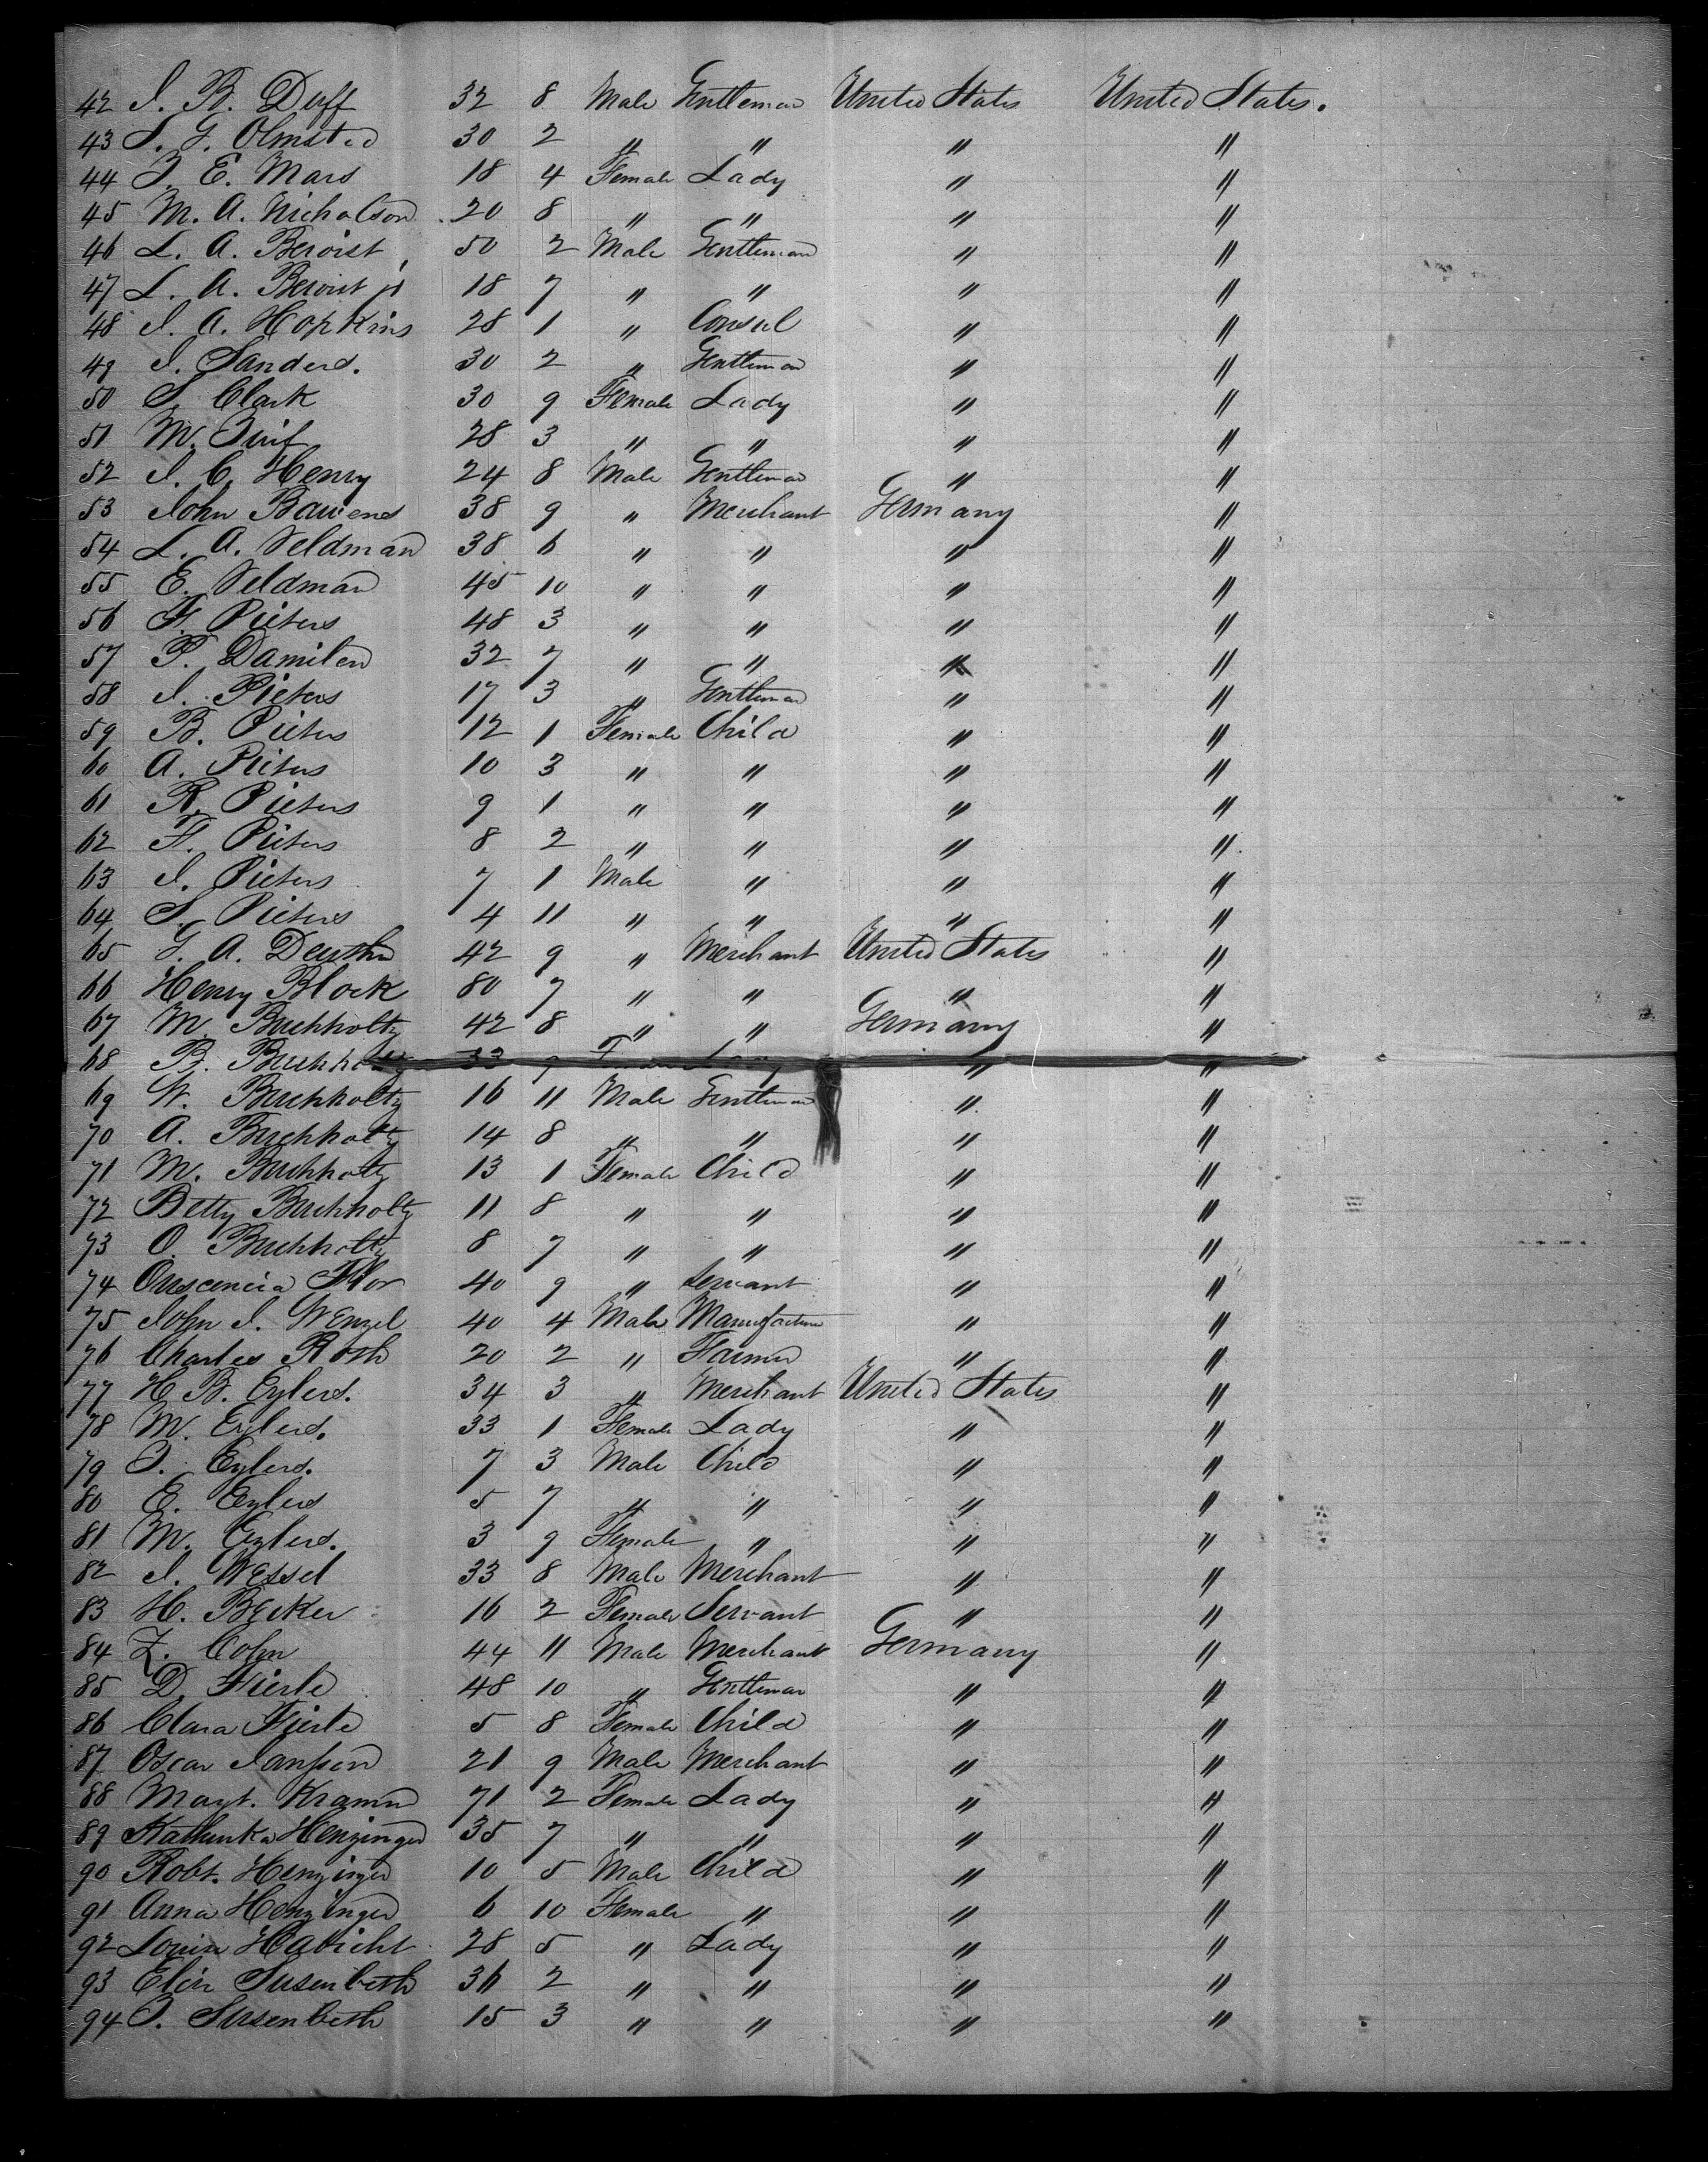 42 J. B. Duff 32 8 Male Gentleman United States United States.
43 S. G. Olmsted 30 2 " " " "
44 J. E. Mars 18 4 Female Lady " "
45 M. A. Nicholson 20 8 " " " "
46 L. A. Benoist 50 2 Male Gentleman " "
47 L. A. Benoist jr 18 7 " " " "
48 J. A. Hopkins 28 1 " Consul " "
49 J. Sanders. 30 2 " Gentleman " "
50 S. Clark 30 9 Female Lady " "
51 M. 28 3 " " " "
52 J. C. Henry 24 8 Male Gentleman " "
53 John Bawens 38 9 " Merchant Germany "
54 L. A. Veldman 38 6 " " " "
55 E. Veldman 45 10 " " " "
56 F. Pieters 48 3 " " " "
57 P. Damilen 32 7 " " " "
58 J. Pieters 17 3 " Gentleman " "
59 B. Pieters 12 1 Female Child " "
60 A. Pieters 10 3 " " " "
61 R. Pieters 9 1 " " " "
62 F. Pieters 8 2 " " " "
63 J. Pieters 7 1 Male " " "
64 S. Pieters 4 11 " " " "
65 G. A. 42 9 " Merchant United States "
66 Henry Block 80 7 " " " "
67 M. Buchholtz 42 8 " " Germany "
68 B. Buchholtz 33 9 " "
69 W. Buchholtz 16 11 Male Gentleman " "
70 A. Buchholtz 14 8 " " " "
71 M. Buchholtz 13 1 Female Child " "
72 Betty Buchholtz 11 8 " " " "
73 O. Buchholtz 8 7 " " " "
74 Flor 40 9 " Servant " "
75 John J. Wenzel 40 4 Male Manufacturer " "
76 Charles Roth 20 2 " Farmer " "
77 H. B. Eylers. 34 3 " Merchant United States "
78 M. Eylers. 33 1 Female Lady " "
79 J. Eylers. 7 3 Male Child " "
80 E. Eylers 5 7 " " " "
81 M. Eylers. 3 9 Female " " "
82 J. Wessel 33 8 Male Merchant " "
83 H. Becker 16 2 Female Servant " "
84 Z. Cohn 44 11 Male Merchant Germany "
85 D. Fierle 48 10 " Gentleman " "
86 Clara Fierle 5 8 Female Child " "
87 Oscar Janssen 21 9 Male Merchant " "
88 Margt. Kramer 71 2 Female Lady " "
89 Kathinka Henzinger 35 7 " " " "
90 Robt. Henzinger 10 5 Male Child " "
91 Anna Henzinger 6 10 Female " " "
92 Louise Habicht 28 5 " Lady " "
93 Elise Susenbeth 36 2 " " " "
94 J. Susenbeth 15 3 " " " "